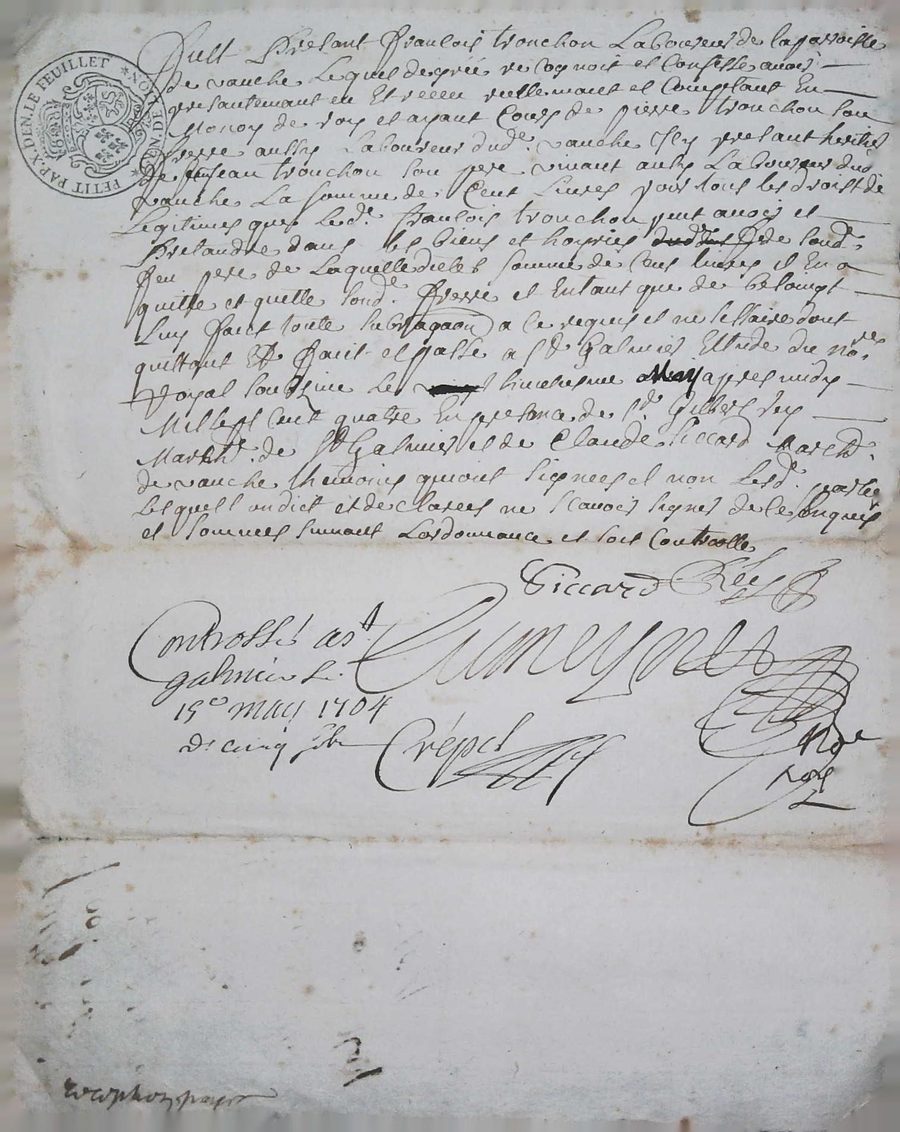 PETIT PAP. X. DEN. LE FEUILLET
GNRTE. DE LION
fust Presant François tronchon Laboureur de la parroisse
de vauche Lequel de gré recognoit et Confesse avoir
presantemant eu Et reçeu reellemant et Comptant En
monoy de roy et ayant Cours de pierre tronchon son
frere aussy Laboureur dud. vauche Icy presant heritier
de feu Jean tronchon son pere vivant aussy Laboureur dud
vauche La somme de Cent Livres pour tous les droist de
Legitimes que Led. François tronchon peut avoir et
Pretandre dans les biens et hoyries de sond.
feu pere de Laquelle somme de Cens livres il En a
quitte et quitte sond. frere et Entant que de besoingt
Luy faict toute a ce requis et nessessaire dont
quittant Et Faict et passe a St Galmier Estude du no.re
Royal soubsigné Le May apres midy
Mil sept cent quatre En presence de Sr. Gilbert Rey
March. de St Galmier et de Claude Piccard March.
de vauche themoins quiont signees et non Lesd. parties
Lesquell ondict et declarees ne scavoir signer de ce enquis
et sommees suivant Lordonnance et soit Controolle
Piccard Rey
Controsslé a st
galmier le
19e may 1704
de cinq sols
Crépet